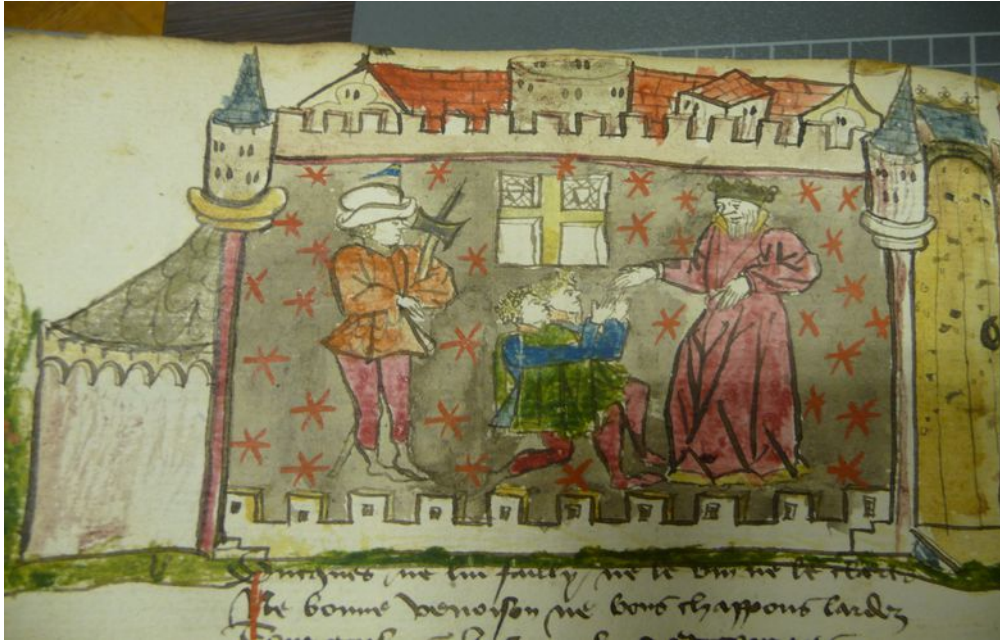 Oncques ne lui failly ne le vin ne le claret
Ne bonne venoison ne bons chappons lardez